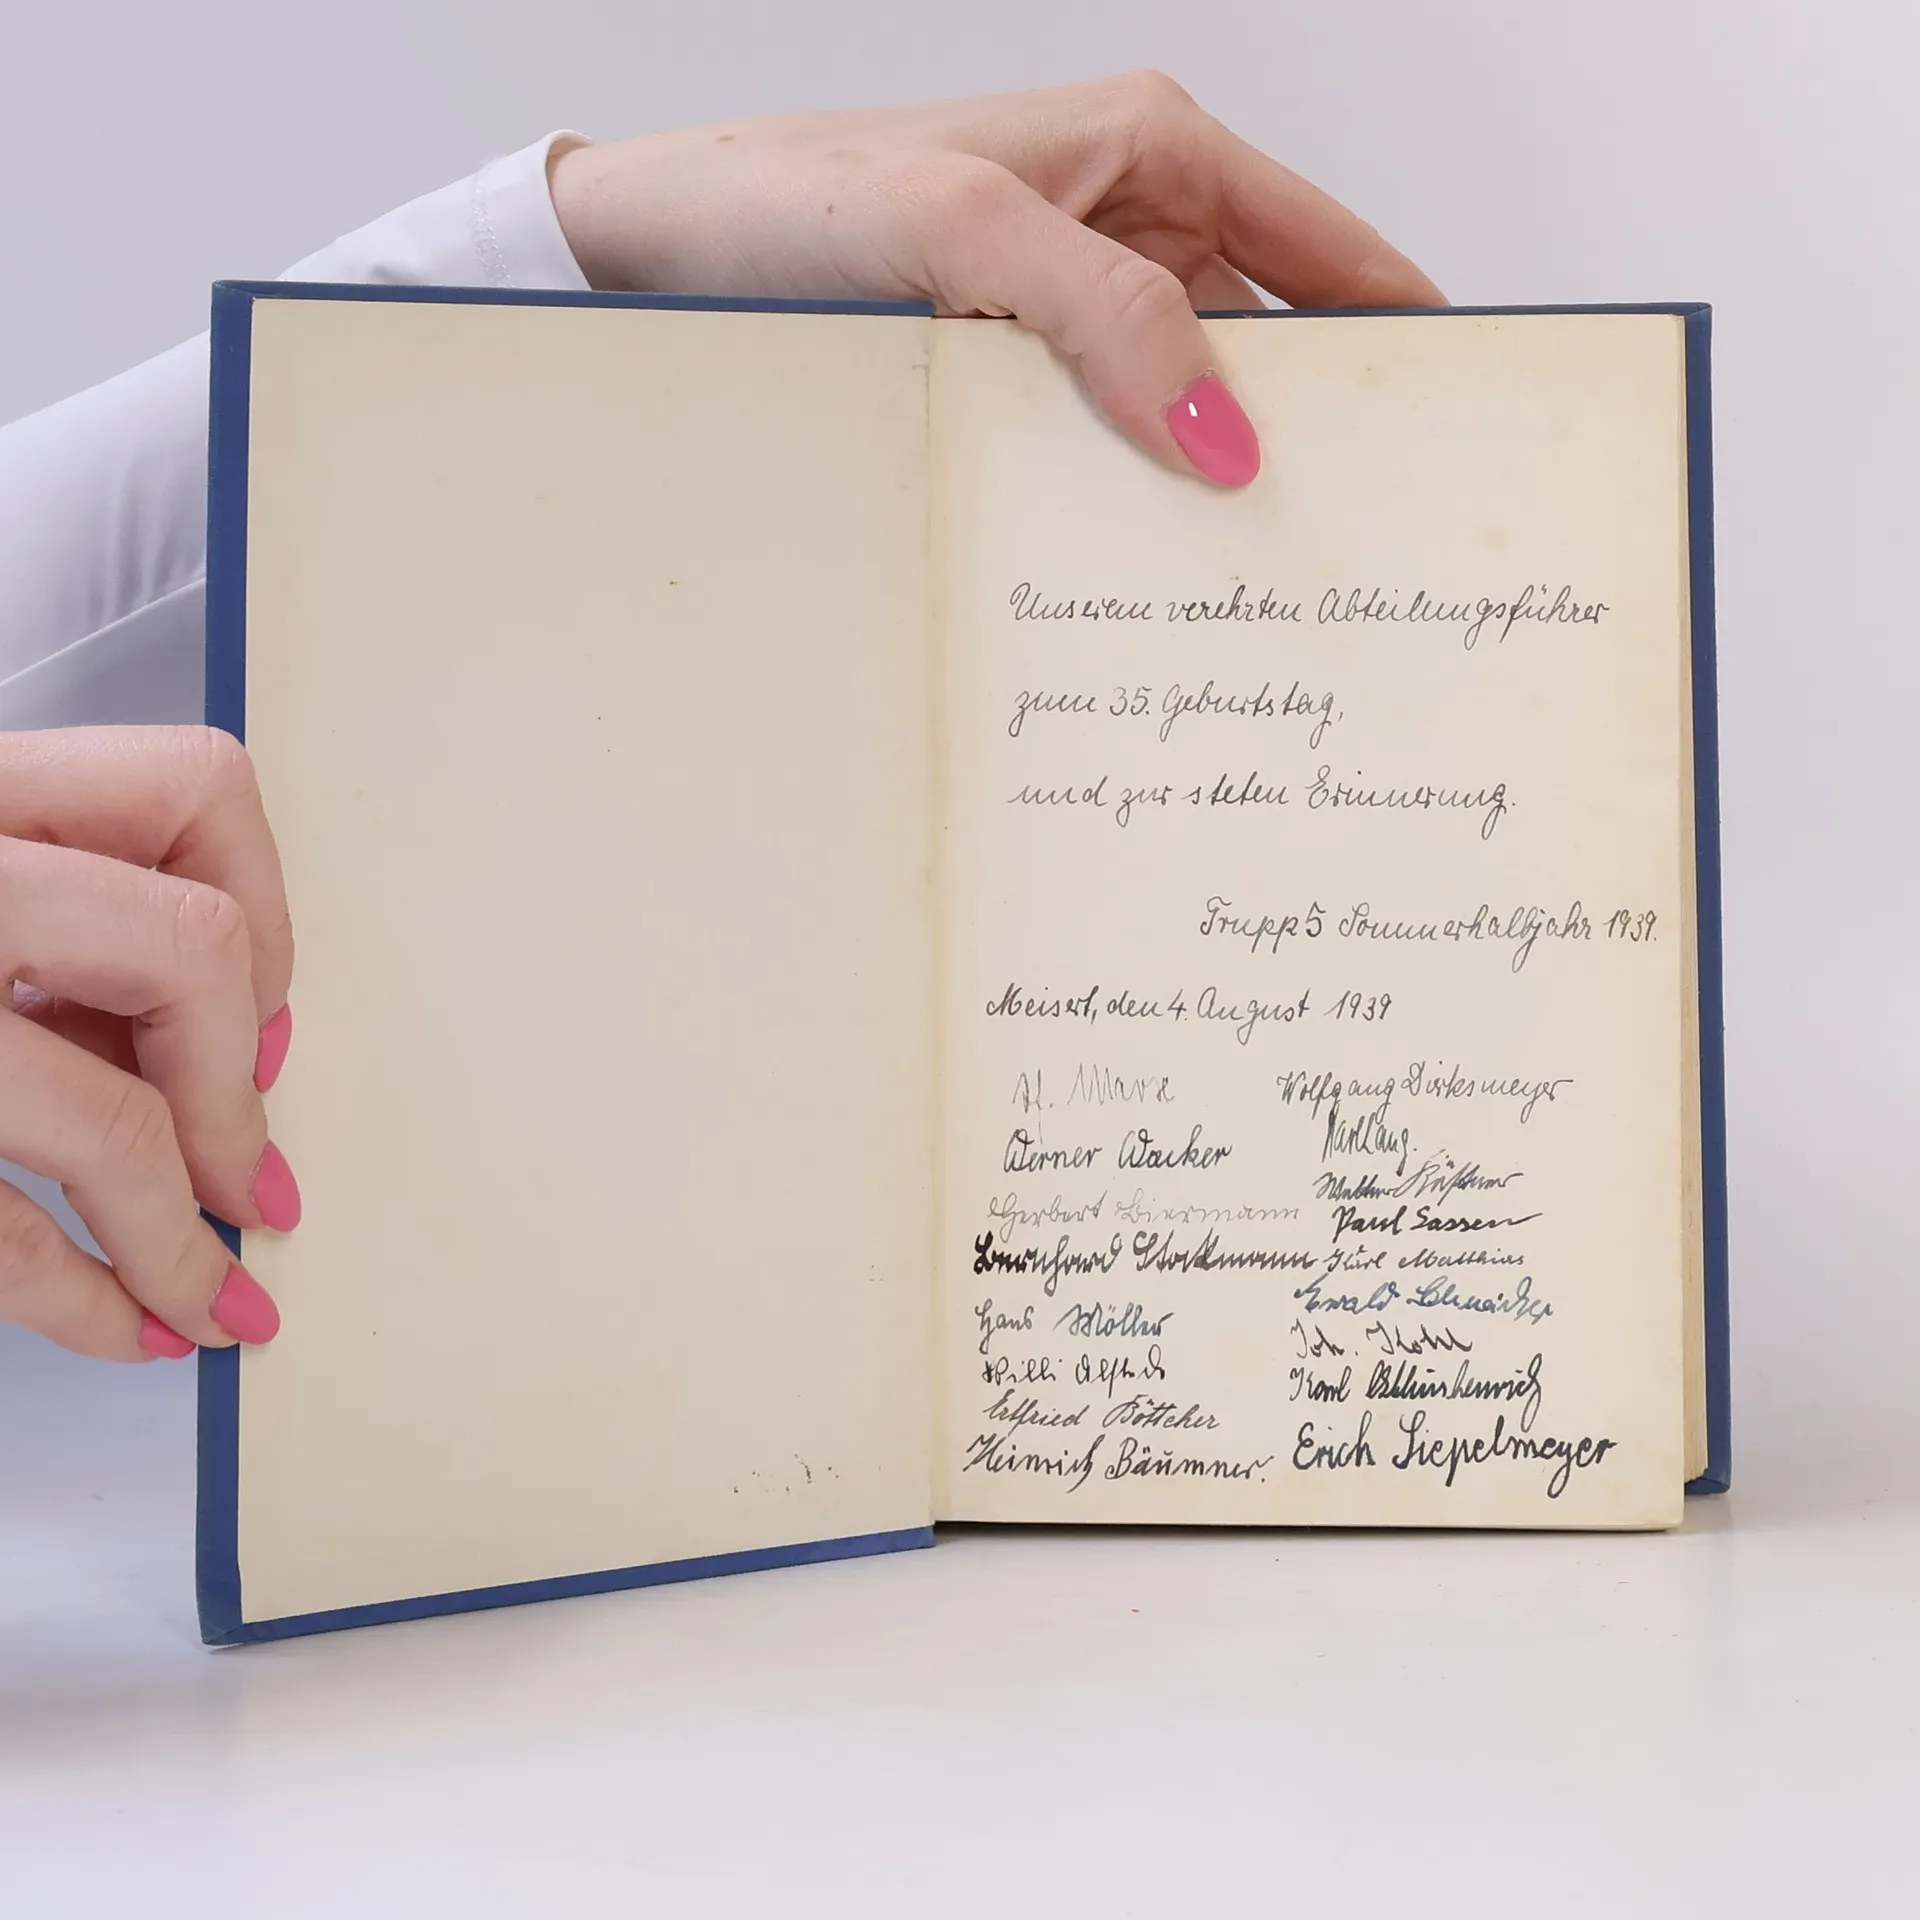 Unserem verehrten Abteilungsführer
zum 35. Geburtstag,
und zur steten Erinnerung.
Trupp 5 Sommerhalbjahr 1939.
Meisert, den 4. August 1939
Werner Wacker
Herbert Biermann
Bernhard Stockmann
Hans Möller
Willi
Ertfried Böttcher
Heinrich Bäumner.
Wolfgang Dirksmeyer
Karl Lang.
Walter
Paul Sassen
Karl Matthias
Ewald
Joh. Kohl
Karl
Erich Siepelmeyer